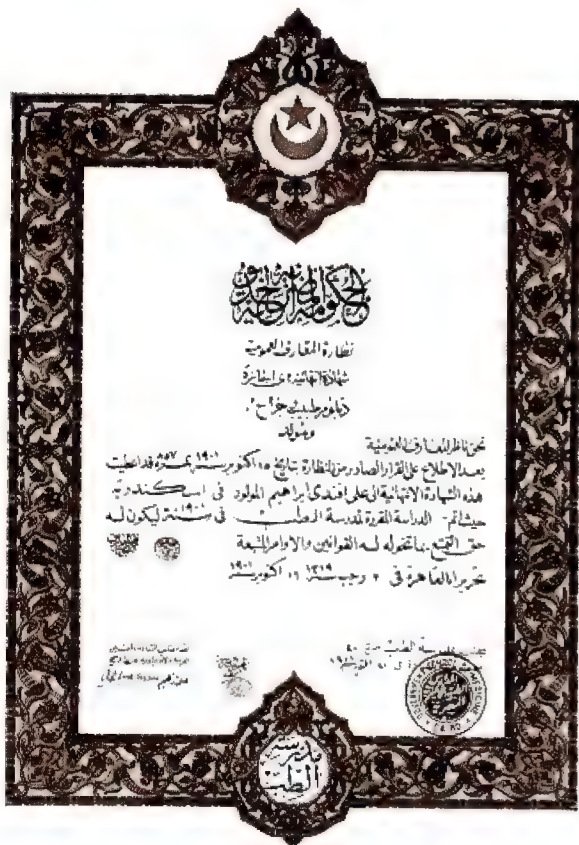 الحكومة المصرية الخديوية
نظارة المعارف العمومية
شهادة انتهائية
دبلوم طبيب جراح
نحن ناظر المعارف العمومية
بعد الاطلاع على القرار الصادر من النظارة بتاريخ ١٥ اكتوبر سنة ١٩٠١ نمرة ٥٥٧ قد اعطيت
هذه الشهادة الانتهائية الى علي افندى ابراهيم المولود في اسكندرية
حيث اتم الدراسة المقررة لمدرسة الطب في سنة ١٩٠١ ليكون له
حق التمتع بما تخوله له القوانين والاوامر المتبعة
تحريرا بالقاهرة في ٣ رجب سنة ١٣١٩ اكتوبر سنة ١٩٠١
مدرسة الطب
SCHOOL OF MEDICINE
مدرسة
الطب